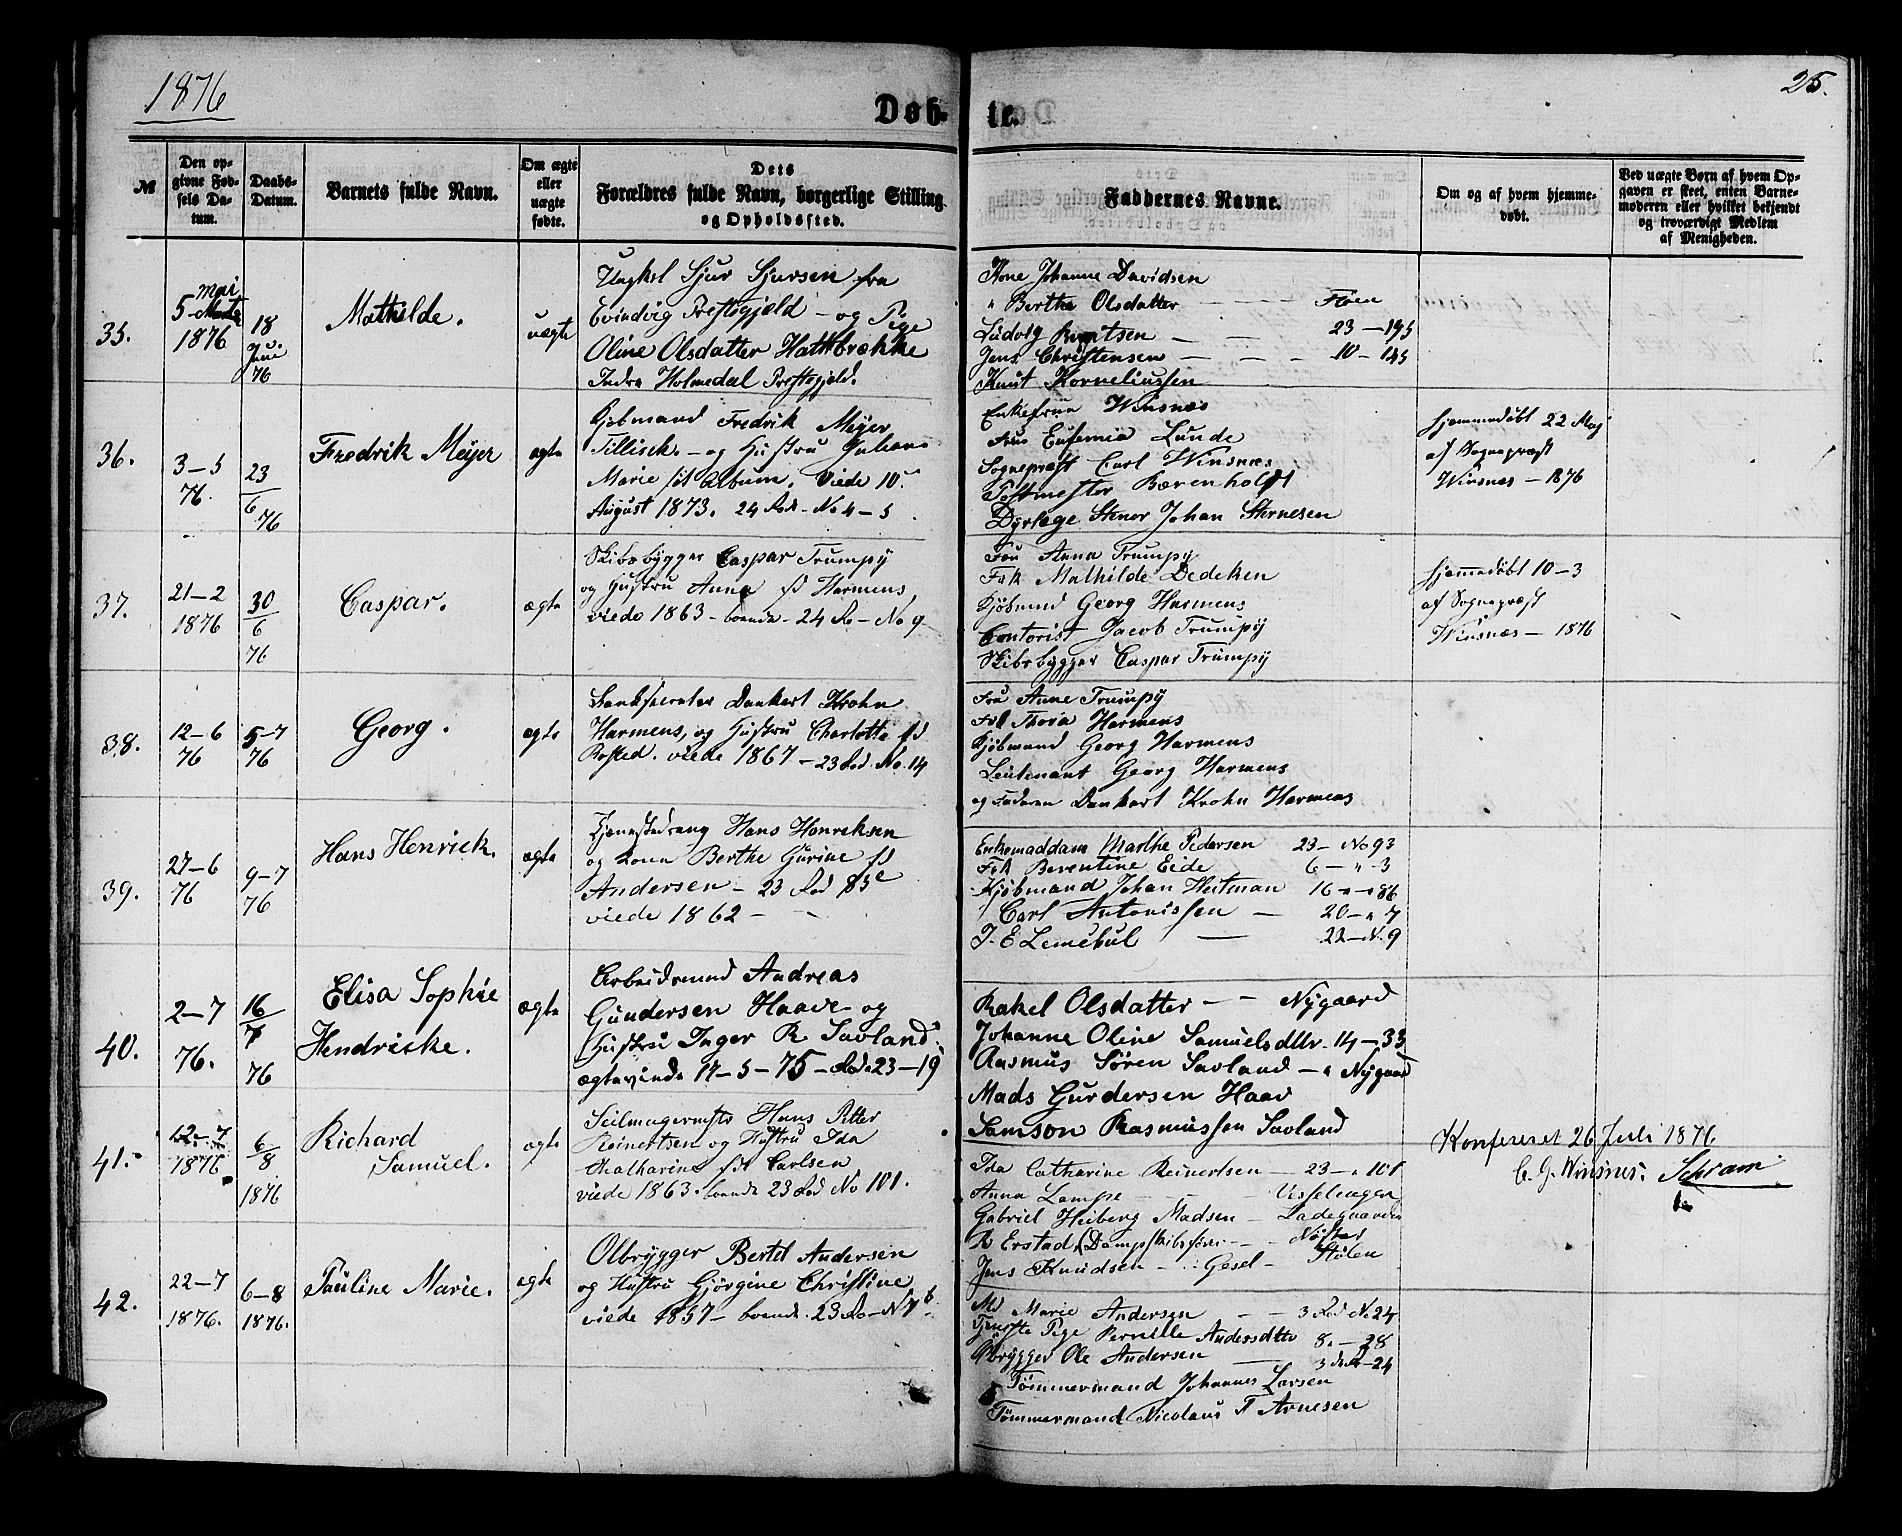 1876
25.
Døb-
te.
№
Den op-
givne Fød-
sels Da-
tum.
Daabs-
Datum.
Barnets fulde Navn.
Om ægte
eller
uægte
fødte.
Dets
Forældres fulde Navn, borgerlige Stilling
og Opholdssted.
Faddernes Navne.
Om og af hvem hjemme-
døbt.
Ved uægte Børn af hvem Op-
gaven er skeet, enten Barne-
moderen eller hvilket bekjendt
og troværdigt Medlem
af Menigheden.
35.
5 Mai
1876
18
Juni
76
Mathilde.
uægte
Ungkel Sjur Sjursen fra
Evindvig Prestegjeld - og Pige
Oline Olsdatter Hattbrække
Indre Holmedal Prestegjeld.
Kone Johanne Davidsen
" Berthe Olsdatter - - - Fløen
Ludvig Berntsen - - 23 - 195
Jens Christensen - - - 10 - 145
Knut Korneliussen
36.
3-5
76.
23
6 76
Fredrik Meyer
ægte
Kjøbmand Fredrik Meyer
Tillisch - og Hustru Juliane
Marie føt Album. Viede 10.
August 1873. 24 Rod - No 4-5
Enkefrue Winsnæs
Frue Eufemia Lunde
Sognepræst Carl Winsnæs
Postmester Bærenholdt
Dyrlæge Stenor Johan Stenersen
hjemmedøbt 22 Maj
af Sognepræst
Winsnæs - 1876
37.
21-2
1876
30
6
76
Caspar.
ægte
Skibsbygger Caspar Trumpy
og Hustru Anna fd Harmens,
viede 1863 - boende - 24 Ro - No 9
Fru Anna Trumpy
Frk Mathilde Dedeken
Kjøbmnd Georg Harmens
Contorist Jacob Trumpy
Skibsbygger Caspar Trumpy
hjemmedøbt 10-3
af Sognepræst
Winsnæs - 1876
38.
12-6
76
5-7
76
Georg.
ægte
Dankert Krohn
Harmens, og Hustru Charlotte fd
Rosted. viede 1867 - 23 Rod. No. 14
Fru Anne Trumpy
Frk Thora Harmens
Kjøbmand Georg Harmens
Leutenant Georg Harmens
og Faderen Dankert Krohn Harmens
39.
27-6
76
9-7
76
Hans Henrick.
ægte
Tjenestedreng Hans Henreksen
og Kone Berthe Gurine fd
Andersen - 23 Rod 83e
viede 1862 -
Enkemaddam Marthe Pedersen 23 - No 93
Frk Berentine Eide 6 - " - 3
Kjøbmand Johan Heitman 16 - " - 86
Carl Antonissen - 20 - " 7
J. E Lemekul - 22 - N. 9
40.
2-7
76.
16
7
76
Elisa Sophie
Hendrikke.
ægte
Arbeidsmand Andreas
Gundersen Haave og
Hustru Inger R. Savland
ægteviede 17-5-75 - Rod. 23 - 19
Rakel Olsdatter - - Nygaard
Johanne Oline Samuelsdttr. 14 - 33
Rasmus Søren Savland - " Nygaard
Mads Gundersen Haav
Samson Rasmussen Savland
41.
12-7
1876
6
8
1876
Richard
Samuel.
ægte
Seilmagermstr Hans Petter
Reinertsen og Hustru Ida
Khatharine fdt Carlsen
viede 1863. boende 23 Rod No 101.
Ida Catharine Reinertsen - 23 - " 101
Anna Lampe - Vesselengen
Gabriel Heiberg Madsen - Ladegaarden
R Erstad (Dampskibsfører - - Nøstet
Jens Knudsen - Gesel - Stølen
Konfereret 26 Juli 1876
C. G. Winsnes. Schram
42.
22-7
1876.
6-8
1876.
Pauline Marie.
ægte
Ølbrygger Bertel Andersen
og Hustru Gjørgine Christine
viede 1857 - boende. 23 Ro - N 7 b.
Md Marie Andersen - - 3 Rod No. 24
Tjenste Pige Pernille Andersdttr 8. - 28
Ølbrygger Ole Andersen - 3 Rode - 24
Tømmermand Johannes Larsen
Tømmermand Nicolaus T Arnesen